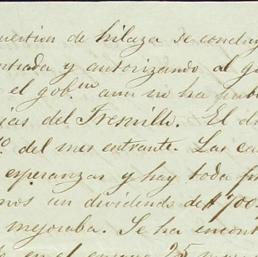 uestion de hilaza se concluy
ntrada y autorizando al g
el gob.no aun no ha
jas del Fresnillo. El di
o del mes entrante. Las ca
esperanzas y hay toda
mos un dividendo de $700
mejoraba. Se ha encont
en el 25